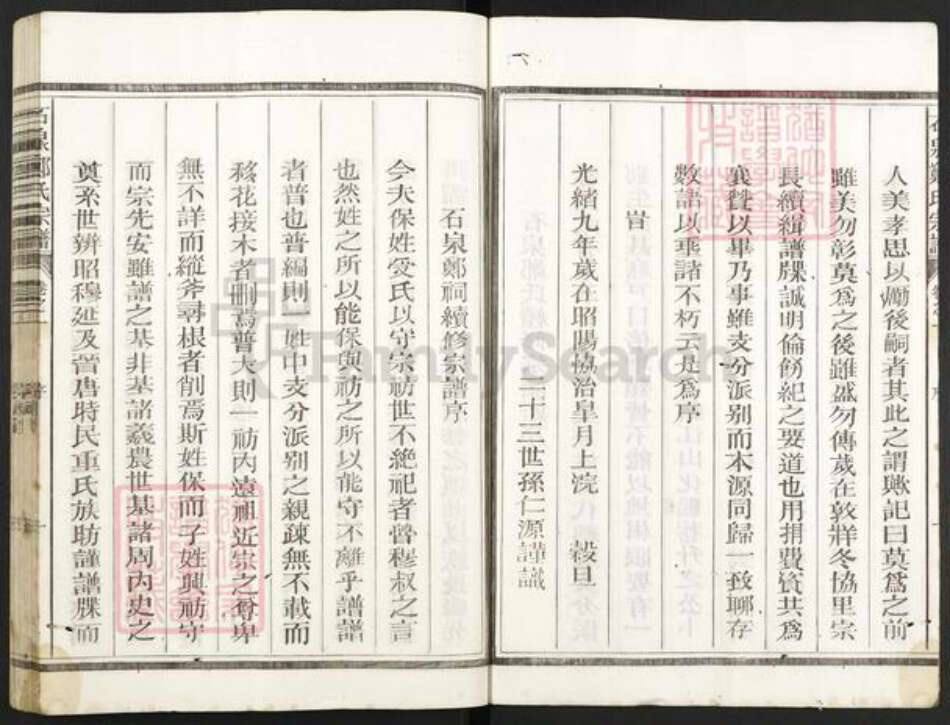 人美孝思以勵後嗣者其此之謂歟記曰莫爲之前
雖美勿彰莫爲之後雖盛勿傳歲在敦牂冬協里宗
長續緝譜牒誠明倫飭紀之要道也用捐費資共爲
襄贊以畢乃事雖支分派别而木源同歸一致聊存
數語以垂諸不朽云是爲序
旹
光緒九年歲在昭陽協治皐月上浣　穀旦
二十三世孫仁源謹識
石泉鄭氏宗譜
石泉鄭祠續修宗譜序
今夫保姓受氏以守宗祊世不絶祀者晉穆叔之言
也然姓之所以能保與祊之所以能守不離乎譜譜
者普也普編則一姓中支分派别之親疎無不載而
移花接木者刪焉普大則一祊内遠祖近宗之尊卑
無不詳而縱斧尋根者削焉斯姓保而子姓興祊守
而宗先安雖譜之基非基諸羲農世基諸周内史之
奠系世辨昭穆延及晉唐時民重氏族昉謹譜牒而
石泉鄭氏宗譜 卷之一 序
FamilySearch